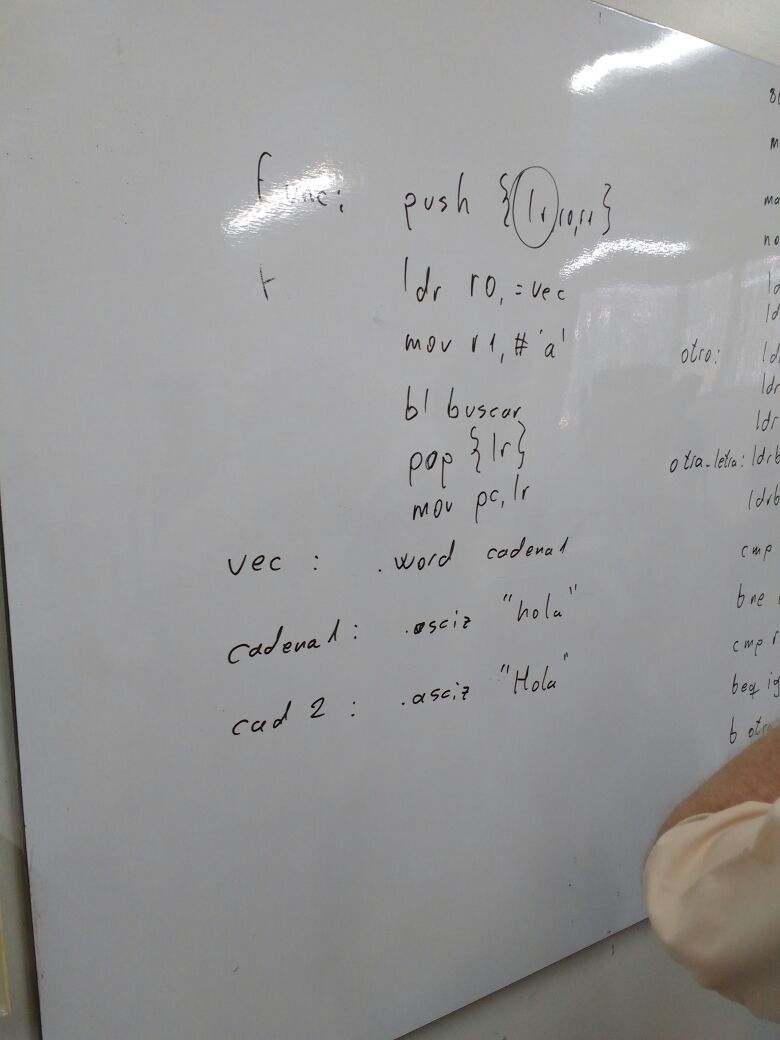 func: push {lr, r0, r1}
ldr r0, =vec
mov r1, #'a'
bl buscar
pop {lr}
mov pc, lr
vec : .word cadena1
cadena1 : .asciz "hola"
cad 2 : .asciz "Hola"
otro:
otra_letra: ldrb
ldrb
cmp
bne
cmp r
beq ig
b otro